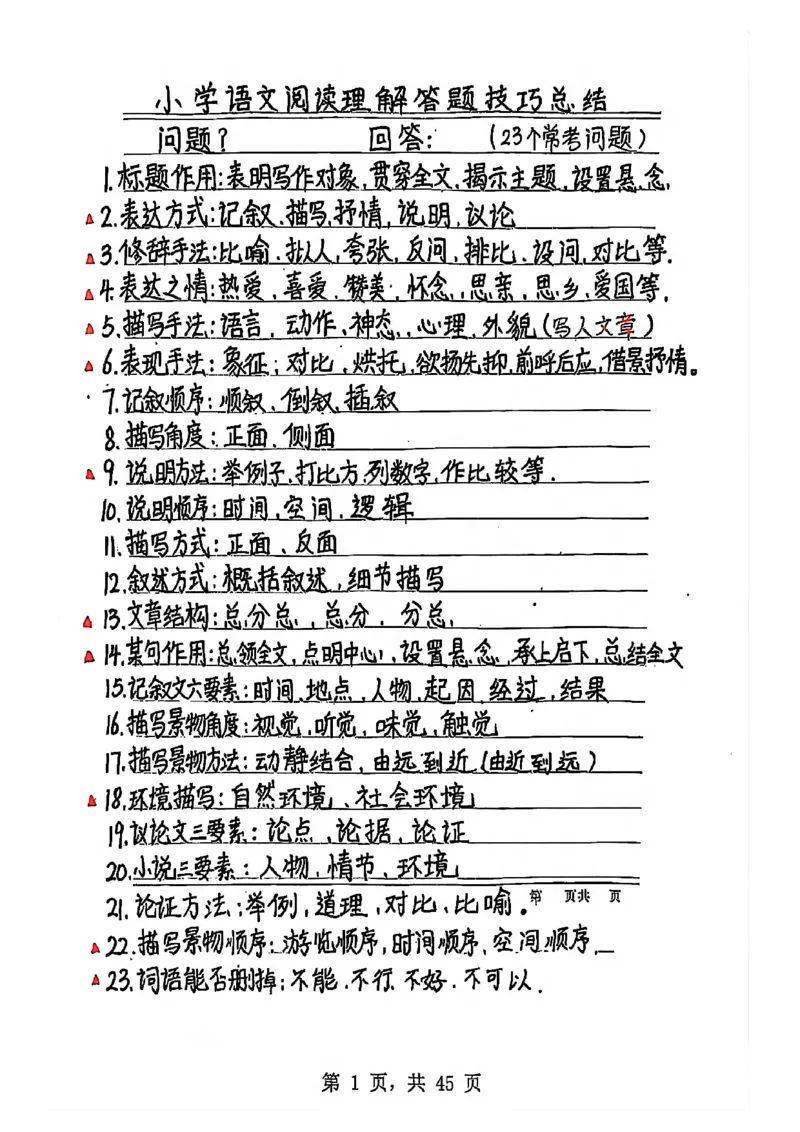 小学语文阅读理解答题技巧总结
问题? 回答: (23个常考问题)
1.标题作用:表明写作对象,贯穿全文.揭示主题,设置悬念,
2.表达方式:记叙.描写,抒情,说明,议论
3.修辞手法:比喻.拟人,夸张,反问,排比.设问,对比等.
4.表达之情:热爱,喜爱.赞美,怀念,思亲,思乡,爱国等,
5.描写手法:语言,动作、神态,心理,外貌(写人文章)
6.表现手法:象征;对比,烘托,欲扬先抑,前呼后应,借景抒情。
7.记叙顺序:顺叙,倒叙,插叙
8.描写角度:正面.侧面
9.说明方法:举例子.打比方.列数字,作比较等.
10.说明顺序:时间,空间.逻辑
11.描写方式:正面、反面
12.叙述方式:概括叙述,细节描写
13.文章结构:总分总,总分,分总,
14.某句作用:总领全文,点明中心,设置悬念,承上启下,总结全文
15.记叙文六要素:时间,地点,人物,起因 经过,结果
16.描写景物角度:视觉,听觉,味觉,触觉
17.描写景物方法:动静结合,由远到近(由近到远)
18.环境描写:自然环境、社会环境
19.议论文三要素:论点,论据,论证
20.小说三要素:人物,情节、环境
21.论证方法:举例,道理,对比、比喻。第 页共 页
22.描写景物顺序:游览顺序,时间顺序,空间顺序,
23.词语能否删掉:不能.不行.不好.不可以.
第 1 页，共 45 页